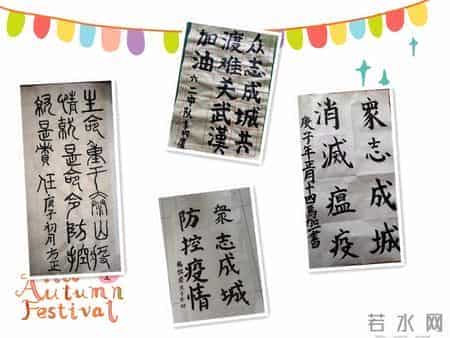 生命重于泰山疫
情就是命令防控
就是責任
众志成城共
渡难关武漢
加油
衆志成城
消滅瘟疫
庚子年正月十四
衆志成城
防控疫情
Autumn
Festival
若水网